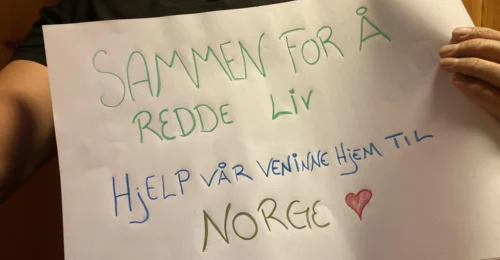 SAMMEN FOR Å
REDDE LIV
HJELP VÅR VENINNE HJEM TIL
NORGE ♥